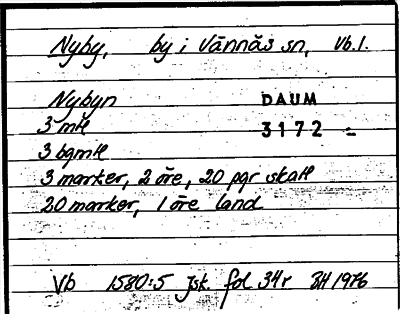 Nyby, by i Vännäs sn, Vb.l.
Nybyn DAUM
3 mtl 3172 =
3 bgmtl
3 marker, 2 öre, 20 pgr skatt
20 marker, 1 öre land
Vb 1580:5 Jsk. fol 34r BH 1976